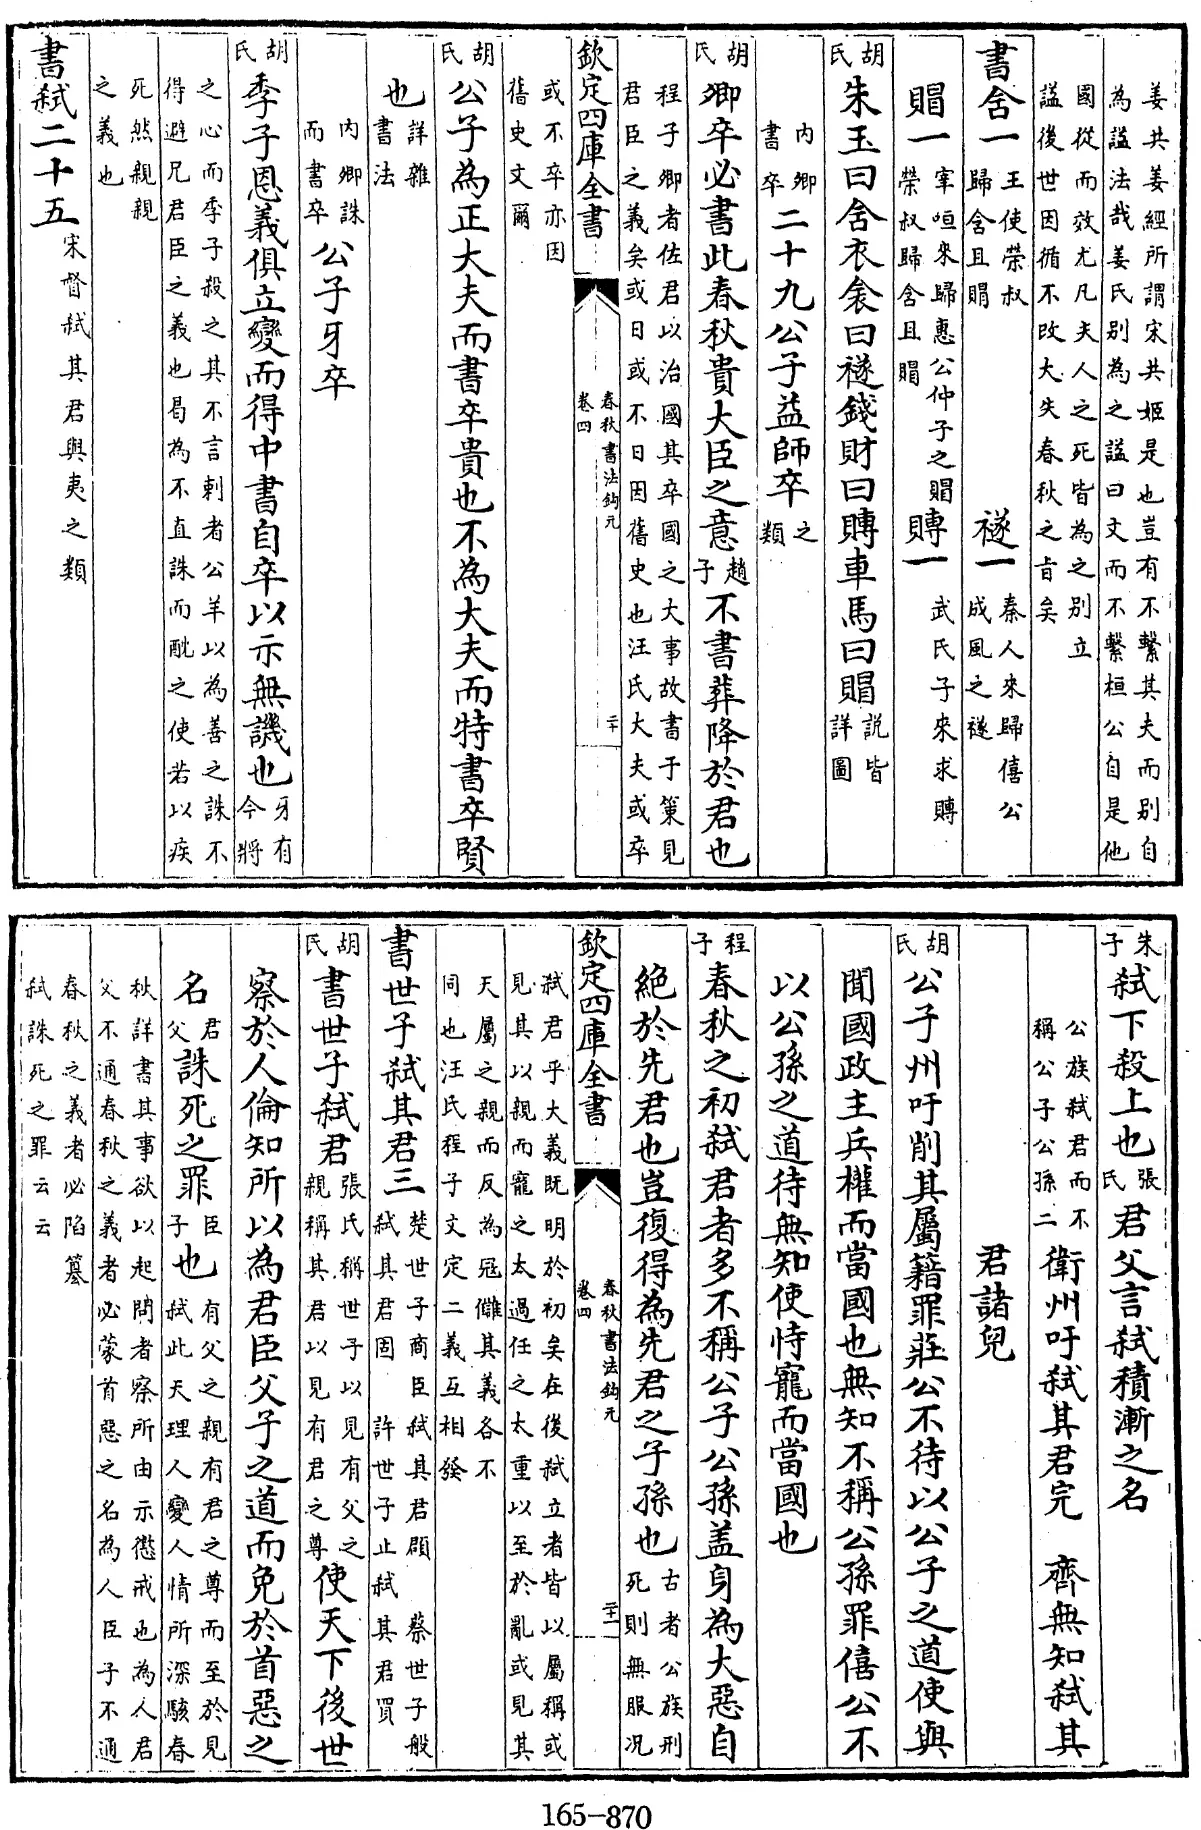 姜共姜經所謂宋共姬是也豈有不繫其夫而别自
為諡法哉姜氏别為之諡曰文而不繫桓公自是他
國從而效尤凡夫人之死皆為之别立
諡後世因循不改大失春秋之旨矣
書含一王使榮叔歸含且賵　襚一秦人來歸僖公成風之襚
賵一宰咺來歸惠公仲子之賵榮叔歸含且賵　賻一武氏子來求賻
胡氏朱玉曰含衣衾曰襚錢財曰賻車馬曰賵說皆詳圖
内卿書卒二十九公子益師卒之類
胡氏卿卒必書此春秋貴大臣之意趙子不書葬降於君也
程子卿者佐君以治國其卒國之大事故書于策見
君臣之義矣或日或不日因舊史也汪氏大夫或卒
欽定四庫全書　春秋書法鈎元　卷四　二十
或不卒亦因
舊史文爾
胡氏公子為正大夫而書卒貴也不為大夫而特書卒賢
也詳雜書法
内卿誅而書卒公子牙卒
胡氏季子恩義俱立變而得中書自卒以示無譏也牙有今將
之心而季子殺之其不言刺者公羊以為善之誅不
得避兄君臣之義也曷為不直誅而酖之使若以疾
死然親親
之義也
書弑二十五宋督弑其君與夷之類
朱子弑下殺上也張氏君父言弑積漸之名
公族弑君而不稱公子公孫二衛州吁弑其君完　齊無知弑其
君諸兒
胡氏公子州吁削其屬籍罪莊公不待以公子之道使與
聞國政主兵權而當國也無知不稱公孫罪僖公不
以公孫之道待無知使恃寵而當國也
程子春秋之初弑君者多不稱公子公孫盖身為大惡自
絶於先君也豈復得為先君之子孫也古者公族刑死則無服况
欽定四庫全書　春秋書法鈎元　卷四　二十一
弑君乎大義既明於初矣在後弑立者皆以屬稱或
見其以親而寵之太過任之太重以至於亂或見其
天屬之親而反為冦讎其義各不
同也汪氏程子文定二義互相發
書世子弑其君三楚世子商臣弑其君頵　蔡世子般弑其君固　許世子止弑其君買
胡氏書世子弑君張氏稱世子以見有父之親稱其君以見有君之尊使天下後世
察於人倫知所以為君臣父子之道而免於首惡之
名君父誅死之罪臣子也有父之親有君之尊而至於見弑此天理人變人情所深駭春
秋詳書其事欲以起問者察所由示懲戒也為人君
父不通春秋之義者必蒙首惡之名為人臣子不通
春秋之義者必陷簒
弑誅死之罪云云
165-870